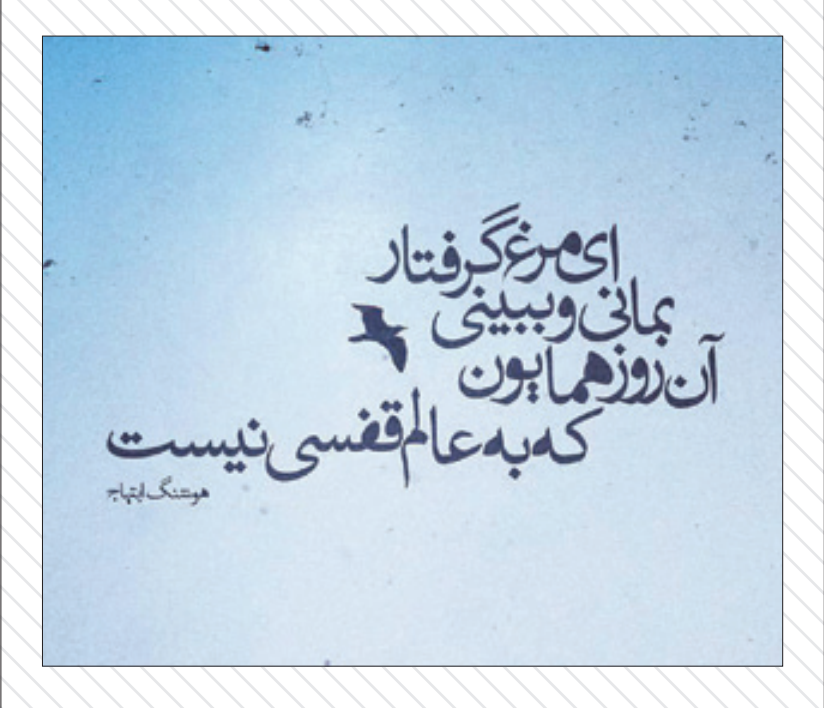 ای مرغ گرفتار
بمانی و ببینی
آن روز همایون
که به عالم قفسی نیست
هوشنگ ابتهاج